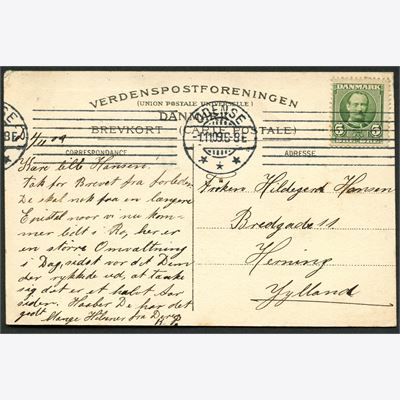 VERDENSPOSTFORENINGEN
(UNION POSTALE UNIVERSELLE)
DANMARK
BREVKORT (CARTE POSTALE)
CORRESPONDANCE
ADRESSE
DANMARK
5 5
ODENSE
-1.11.09 6-9E
1/11 09
Kære lille Hansen!
Tak for Brevet fra forleden
De skal nok faa en længere
Epistel naar vi nu kom-
mer lidt i Ro, her er
en större Omvæltning
i Dag, sidst var det Dem
der rykkede ud, at tænke
sig det er et halvt Aar
siden. Haaber De har det
godt. Mange Hilsner fra Deres
Frøken Hildegard Hansen
Bredgade 11
Herning
Jylland